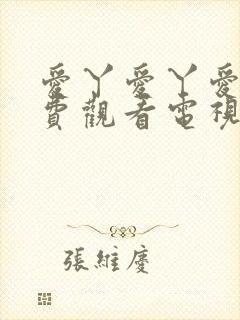 愛丫愛丫愛
費觀看電視
張維慶